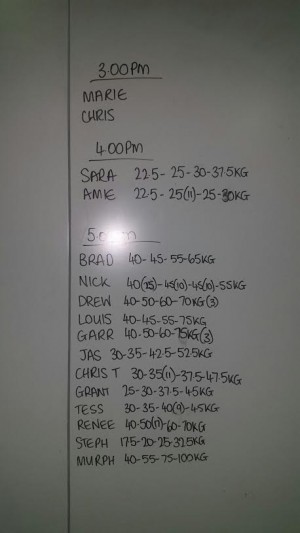 3.00PM
MARIE
CHRIS
4.00PM
SARA 22.5 - 25 - 30 - 37.5KG
AMIE 22.5 - 25(11) - 25 - 30KG
BRAD 40 - 45 - 55 - 65KG
NICK 40(25) - 45(10) - 45(10) - 55KG
DREW 40 - 50 - 60 - 70KG(3)
LOUIS 40 - 45 - 55 - 75KG
GARR 40 - 50 - 60 - 75KG(3)
JAS 30 - 35 - 42.5 - 52.5KG
CHRIS T 30 - 35(11) - 37.5 - 47.5KG
GRANT 25 - 30 - 37.5 - 45KG
TESS 30 - 35 - 40(9) - 45KG
RENEE 40 - 50(11) - 60 - 70KG
STEPH 17.5 - 20 - 25 - 32.5KG
MURPH 40 - 55 - 75 - 100KG